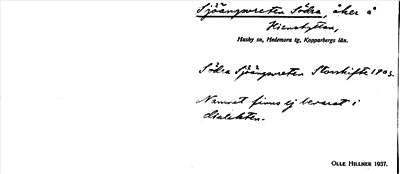 Sjöängsreten Södra, åker å
Husby sn, Hedemora tg, Kopparbergs län.
Södra Sjöängsreten Storskifte 1803.
Namnet finns ej bevarat i
dialekten.
OLLE HILLNER 1937.